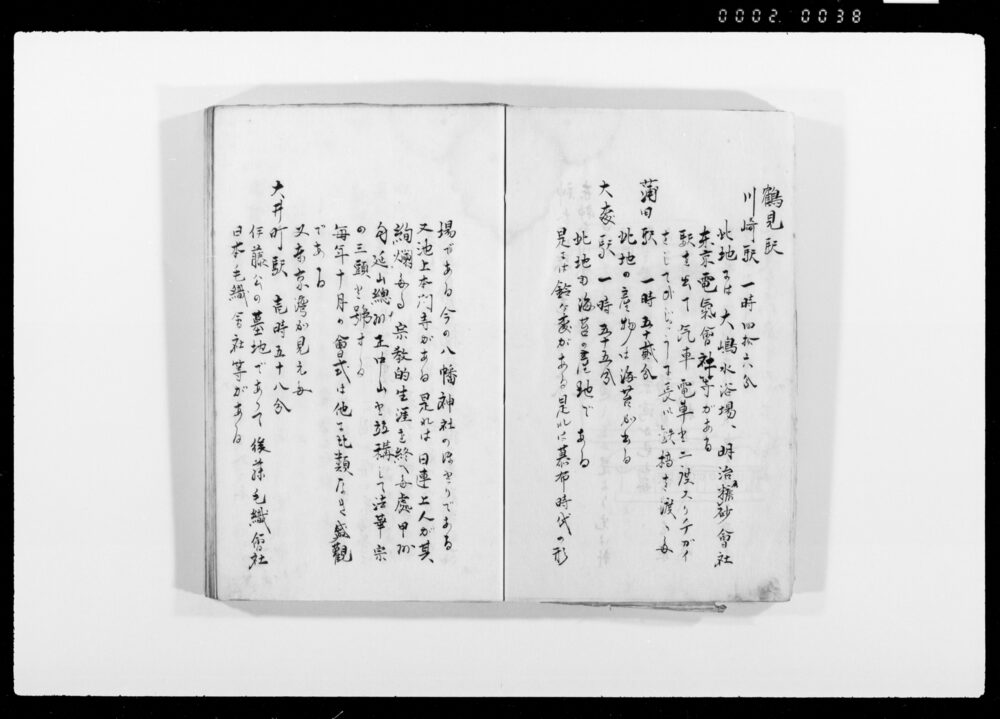 0002 0038
鶴見駅
川崎駅 一時四拾六分
此地には大嶋水浴場、明治精砂會社
東京電氣會社等がある
駅を出て汽車電車と二度スリチガイ
長い鉄橋を渡る
蒲田駅 一時五十貳分
此地の産物は海苔である
大森駅 一時五十五分
此地も海苔の産地である
是には鈴ヶ森がある是れは幕府時代の刑
場である今の八幡神社のほとりである
又池上本門寺がある是れは日蓮上人が其
絢爛なる宗教的生涯を終へし處甲州
身延山總州正中山と並稱して法華宗
の三頭と號する
毎年十月の會式は他に比類なき盛觀
である
又東京灣が見える
大井町駅 壱時五十八分
伊藤公の墓地であつて後藤毛織會社
日本毛織會社等がある